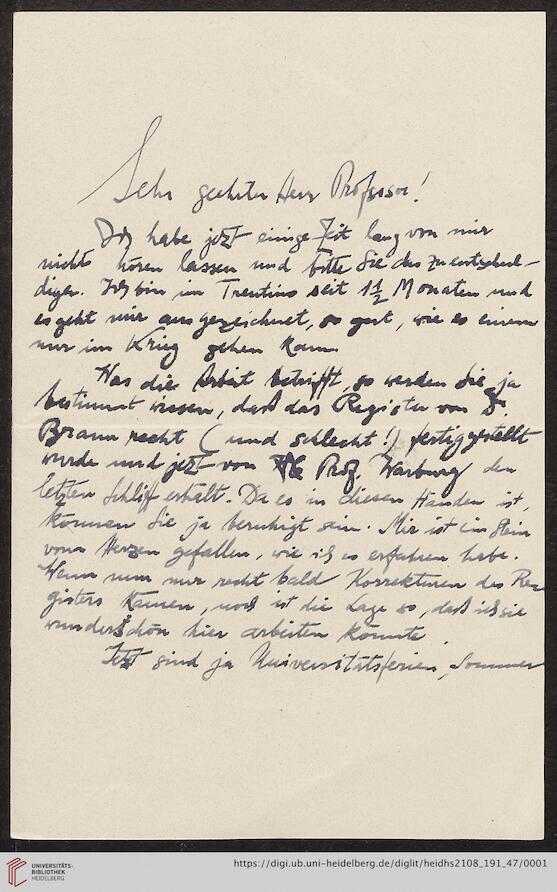 Sehr geehrter Herr Professor!
Ich habe jetzt einige Zeit lang von mir
nichts hören lassen und bitte Sie das zu entschul-
digen. Ich bin im Trentino seit 1 1/2 Monaten und
es geht mir ausgezeichnet, so gut, wie es einem
nur im Krieg gehen kann.
Was die Arbeit betrifft, so werden Sie ja
bestimmt wissen, daß das Register von Dr.
Braun recht (und schlecht!) fertiggestellt
wurde und jetzt von Prof. Warburg den
letzten Schliff erhält. Da es in diesen Händen ist,
können Sie ja beruhigt sein. Mir ist ein Stein
vom Herzen gefallen, wie ich es erfahren habe.
Wenn nun nur recht bald Korrekturen des Re-
gisters kämen, noch ist die Lage so, daß ich sie
wunderschön hier arbeiten könnte.
Jetzt sind ja Universitätsferien, Sommer
UNIVERSITÄTS-
BIBLIOTHEK
HEIDELBERG
https://digi.ub.uni-heidelberg.de/diglit/heidhs2108_191_47/0001